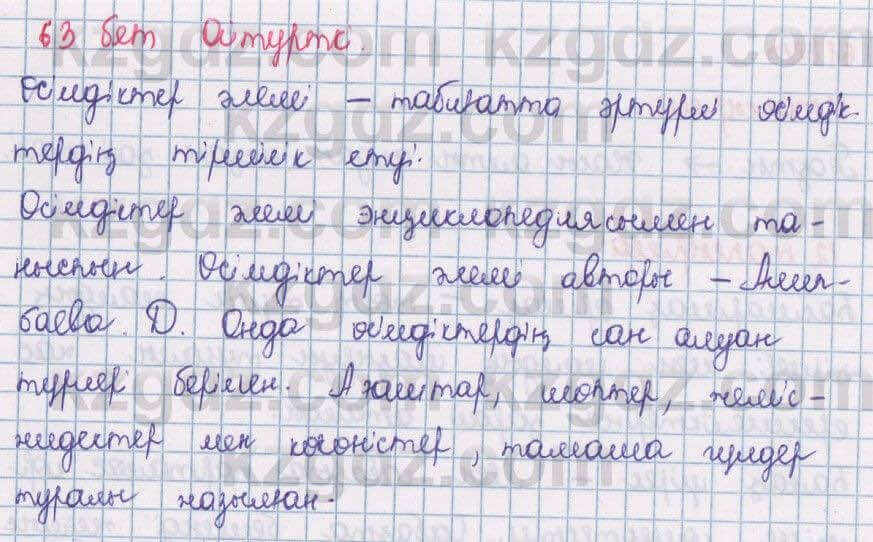 63 бет Ой түрткі.
Өсімдіктер әлемі – табиғатта әртүрлі өсімдік
тердің тіршілік етуі.
Өсімдіктер әлемі энциклопедиясымен та-
ныспын. Өсімдіктер әлемі авторы – Әшел-
баева Д. Онда өсімдіктердің сан алуан
түрлері берілген. Ағаштар, шөптер, жеміс-
жидектер мен көкөністер, тамаша гүлдер
туралы жазылған.
kzgdz.com